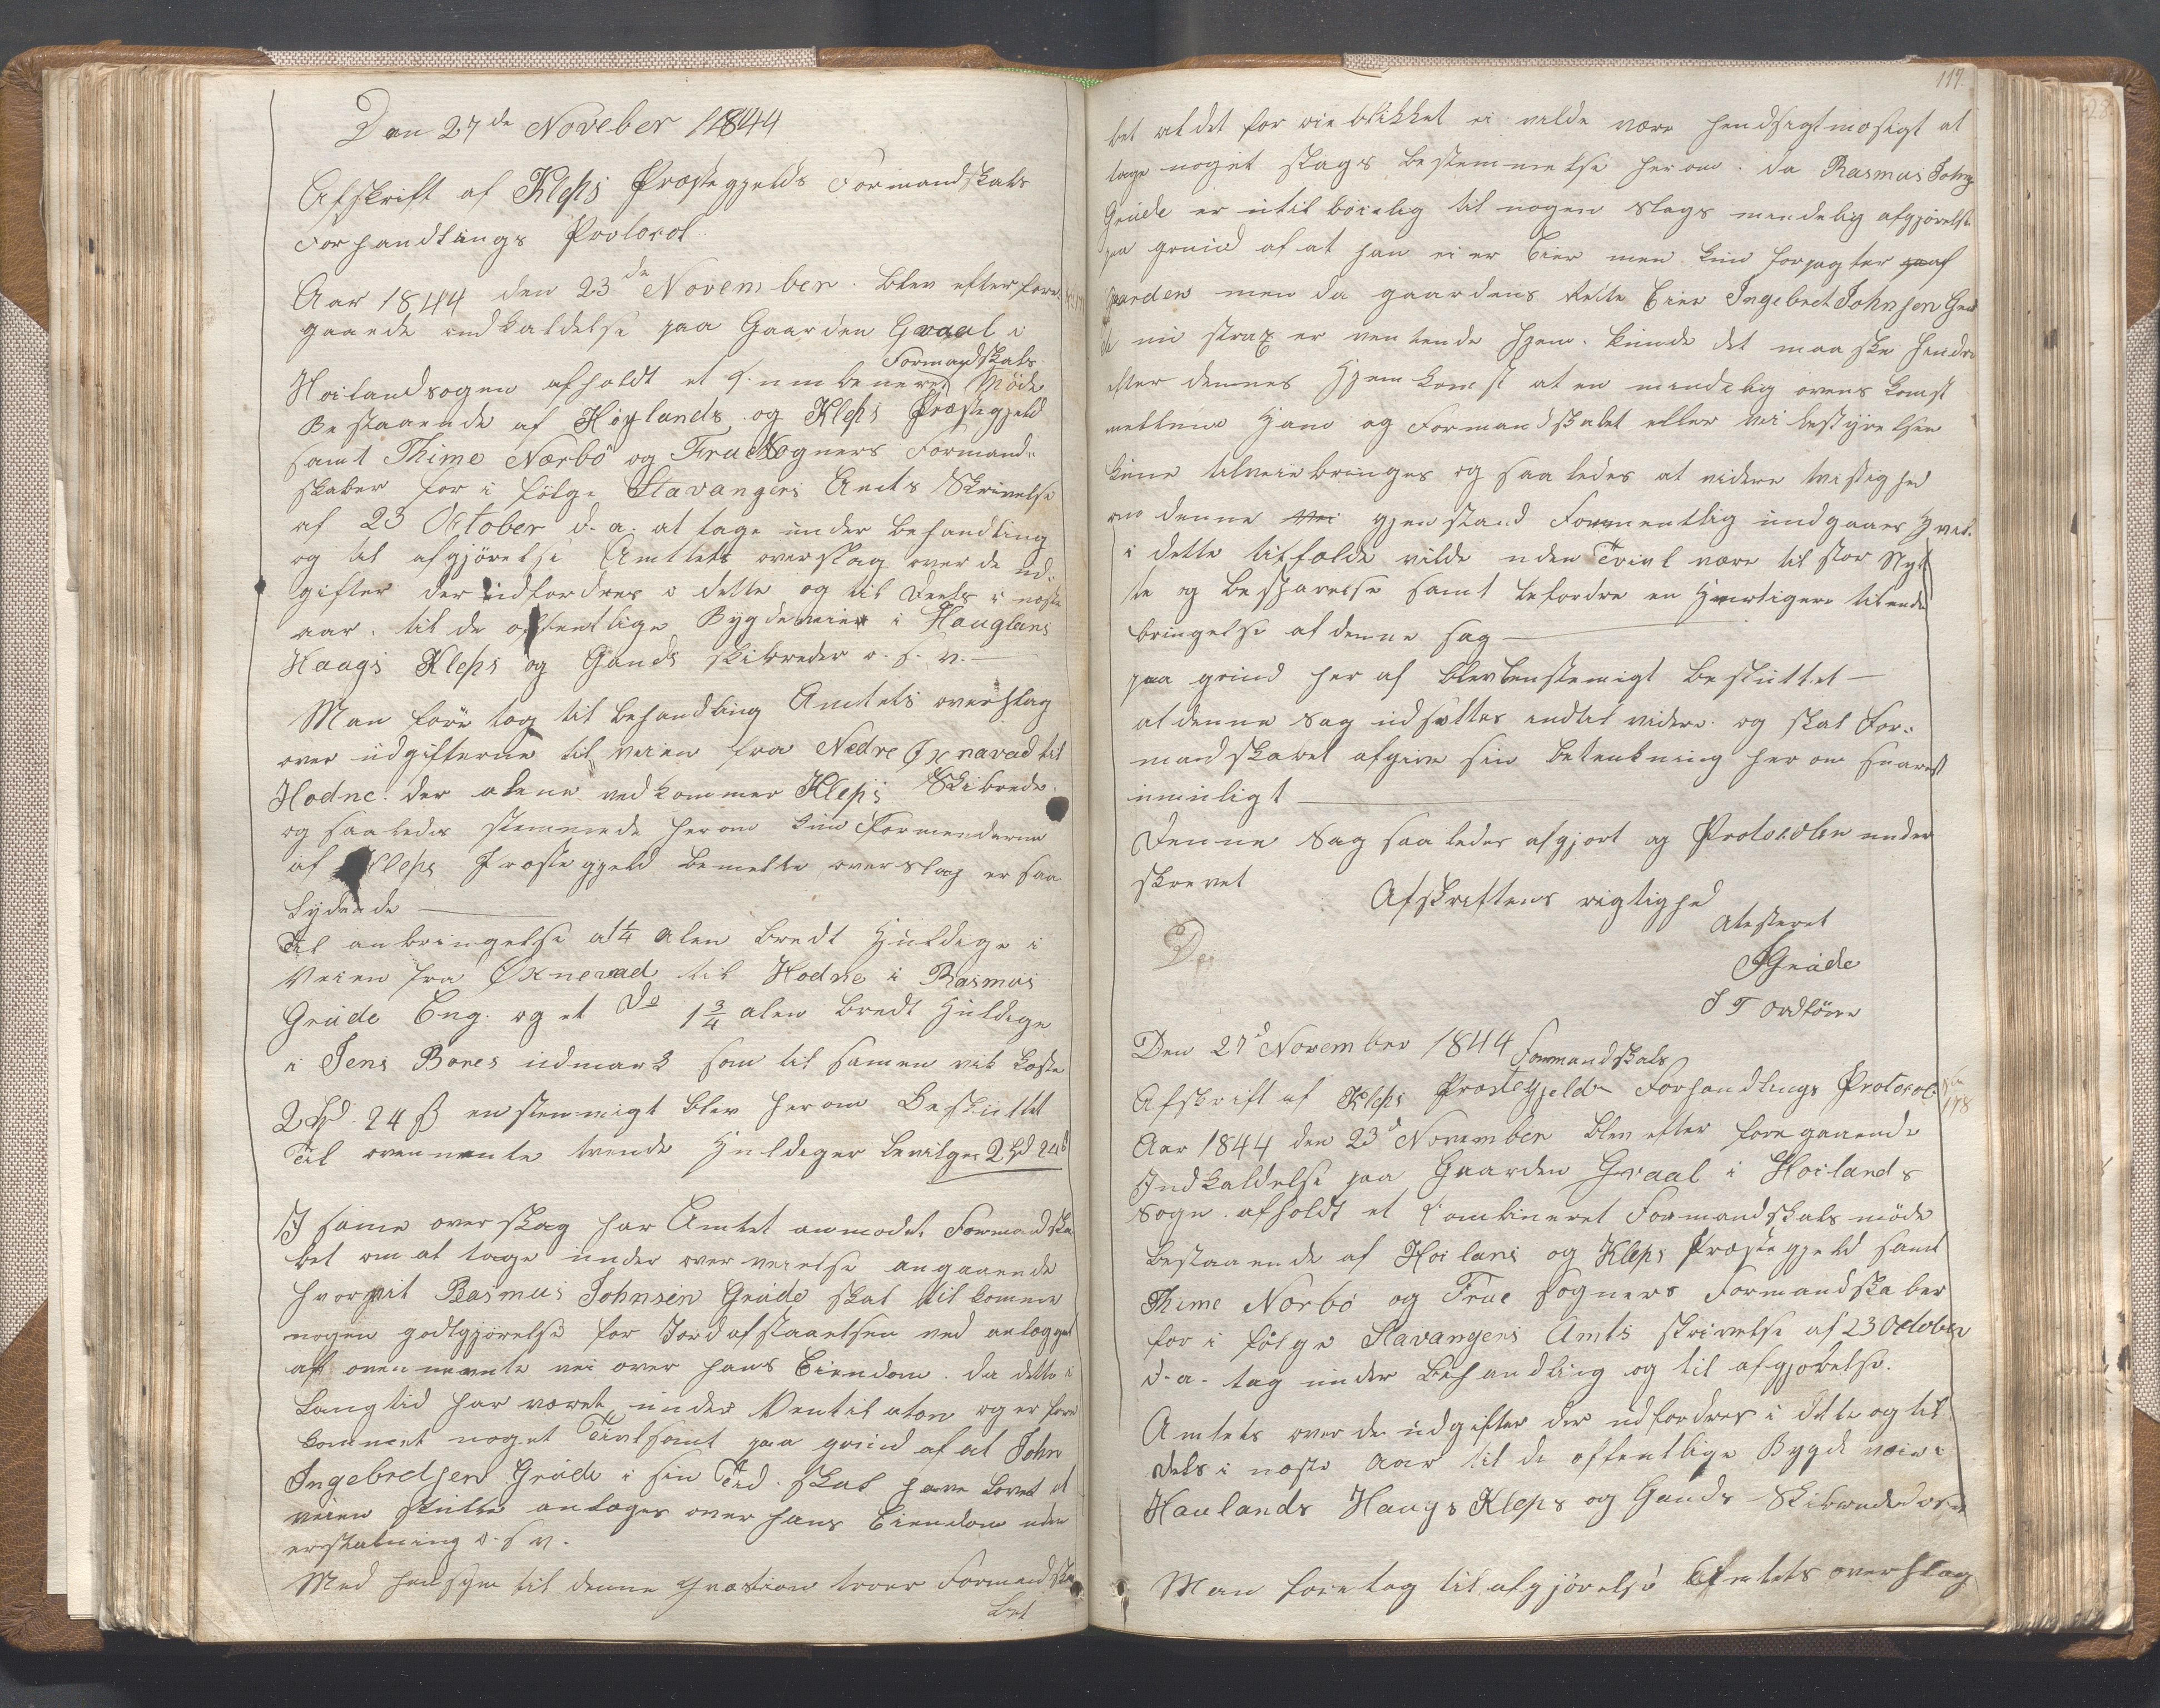 Den 27de Noveber 1844
Afskrift af Kleps Præstegjelds Formandskabs
Forhandlings Protocol
Aar 1844 den 23de November. blev efter fore-
gaaende indkaldelse paa Gaarden Graal i
Formandskabs
Hoilandsogen afholdt et Møde
Bestaaende af Høylands og Kleps Præstegjeld
samt Thime Nærbö og Frue Sogners Formand-
skaber for i fölge Stavangers Amts Skrivelse
af 23 October d. a. at tage under behandling
og til afgjörelse Amtets overslag over de ud-
gifter der udfordres i dette og til Deels i næste
aar. til de offentlige Bygdeveier i Hauglans
Haags Kleps og Gands skibreder o. s. v. —
Man foretog til behandling Amtets overslag
over udgifterne til veien fra Nedre Øxnavad til
Hodne. der alene vedkommer Kleps Skibrede.
og saaledes stemmede herom kun Formænderne
af Kleps Præstegjeld bemelte overslag er saa
lydende —
Til anbringelse af 1/4 alen bredt Huldige i
Veien fra Øxnevad til Hodne i Rasmus
Grude Eng. og et Do 1 3/4 alen bredt Huldige
i Jens Bores udmark som til samen vil koste
2 Spd 24 ß enstemmigt blev herom Besluttet
Til ovennevnte tvende Huldiger bevilges 2 Spd 24 ß
I same overslag har Amtet anmodet Formandska
bet om at tage under overveielse angaaende
hvorvit Rasmus Johnsen Grude skal tilkomme
nogen godtgjörelse for Jordafstaaelsen ved anlægget
af ovennevnte vei over hans Eiendom. da dette i
Langtid har været under Ventilation og er fore
kommet noget Tvivlsomt paa grund af at John
Ingebretsen Grude i sin Tid. skal have lovet at
veien skulle anlæges over hans Eiendom uden
erstatning o. s. v.
Med hensyn til denne Qvæstion troer Formandska
bet
117.
bet at det for øieblikket ei vilde være hensigtmæsigt at
tage noget slags bestemmelse herom. da Rasmus Johns
Grude er utilböielig til nogen slags mindelig afgjörelse
paa grund af at han ei er Eier men kun forpagter af
gaarden men da gaardens Rette Eier Ingebret Johnsen Gru
de nu strax er ventende Hjem. kunde det maaske hende
efter dennes Hjemkomst at en mindelig overenskomst
mellem Ham og Formandskabet eller veibestyrelsen
kune tilveiebringes og saaledes at videre tvistighed
om denne gjenstand Formentlig undgaaes Hvad
i dette tilfælde vilde uden Tvivl være til stor Nyt
te og besparelse samt befordre en Hurtigere tilende
bringelse af denne sag —
paa grund her af blev enstemigt besluttet —
at denne Sag udsættes indtil videre. og skal For-
mandskabet afgive sin betenkning her om snarest
muuligt —
Denne Sag saaledes afgjort og Protocolen under
skrevet
Afskriftens rigtighed
atesteret
Grude
Ordförer
De
Den 27d November 1844
Formandskabs
Afskrift af Kleps Præstegjelds Forhandlings Protocol
178
Aar 1844 den 23d November blev efter foregaaende
Indkaldelse paa Gaarden Graal i Hoilands
Sogn. afholdt et Combineret Formandskabs møde
bestaaende af Hoilans og Kleps Præstegjeld samt
Thime Norbo og Frue sogners Formandskaber
for i fölge Stavangers Amts skrivelse af 23 October
d. a. tag under Behandling og til afgjörelse.
Amtets over de udgifter der udfordres i dette og til
dels i næste Aar til de offentlige Bygde veie i
Haulands Haugs Kleps og Gands Skibreder
Man foretag til afgjörelse Amtets overslag